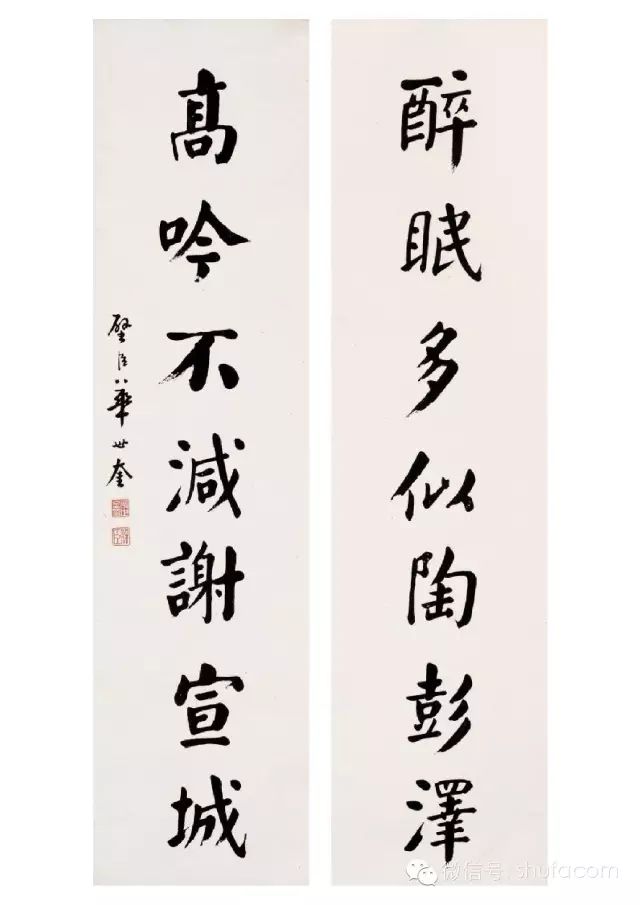 醉眠多似陶彭澤
髙吟不減謝宣城
璧臣華世奎
微信号: shufacom